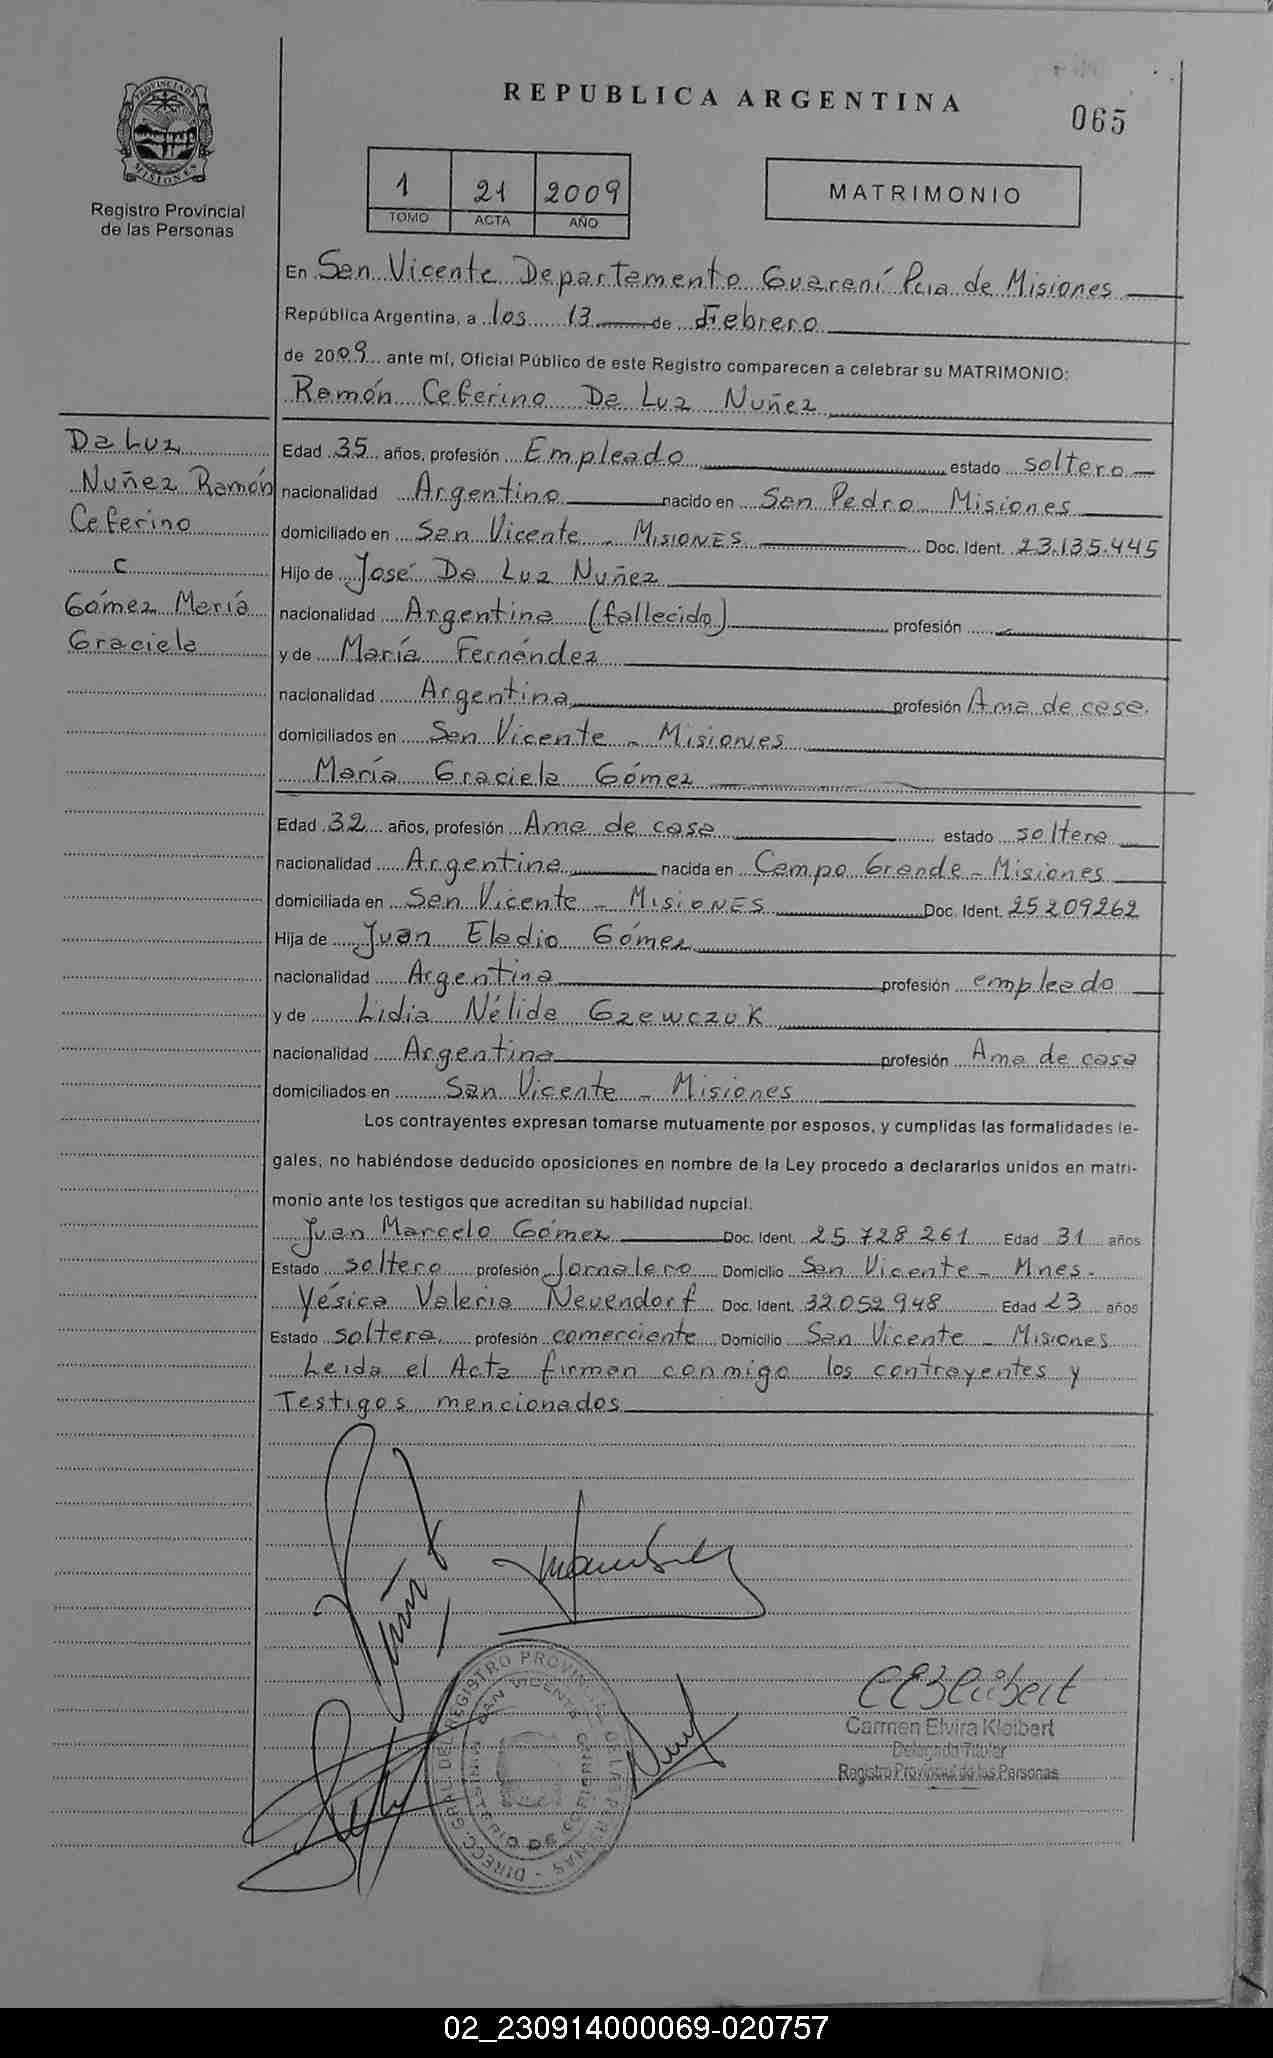 REPUBLICA ARGENTINA
065
PROVINCIA DE MISIONES
Registro Provincial
de las Personas
1 21 2009
TOMO ACTA AÑO
MATRIMONIO
En San Vicente Departamento Guaraní Pcia de Misiones
República Argentina, a los 13 de Febrero
de 2009 ante mí, Oficial Público de este Registro comparecen a celebrar su MATRIMONIO:
Ramón Ceferino Da Luz Nuñez
Da Luz
Nuñez Ramón
Ceferino
c
Gómez María
Graciela
Edad 35 años, profesión Empleado estado soltero
nacionalidad Argentino nacido en San Pedro Misiones
domiciliado en San Vicente - MISIONES Doc. Ident. 23.135.445
Hijo de José Da Luz Nuñez
nacionalidad Argentina (fallecido) profesión
y de María Fernández
nacionalidad Argentina profesión Ama de casa.
domiciliados en San Vicente - Misiones
María Graciela Gómez
Edad 32 años, profesión Ama de casa estado soltera
nacionalidad Argentina nacida en Campo Grande - Misiones
domiciliada en San Vicente - MISIONES Doc. Ident. 25209262
Hija de Juan Eladio Gómez
nacionalidad Argentina profesión empleado
y de Lidia Nélida Gzewczuk
nacionalidad Argentina profesión Ama de casa
domiciliados en San Vicente - Misiones
Los contrayentes expresan tomarse mutuamente por esposos, y cumplidas las formalidades le-
gales, no habiéndose deducido oposiciones en nombre de la Ley procedo a declararlos unidos en matri-
monio ante los testigos que acreditan su habilidad nupcial.
Juan Marcelo Gómez Doc. Ident. 25.728.261 Edad 31 años
Estado soltero profesión Jornalero Domicilio San Vicente - Mnes.
Yésica Valeria Neuendorf Doc. Ident. 32.052.948 Edad 23 años
Estado soltera profesión comerciante Domicilio San Vicente - Misiones
Leida el Acta firman conmigo los contrayentes y
Testigos mencionados
DIREC. GRAL. DEL REGISTRO PROVINCIAL DE LAS PERSONAS
SAN VICENTE
Carmen Elvira Kleibert
Delegada Titular
Registro Provincial de las Personas
02_230914000069-020757